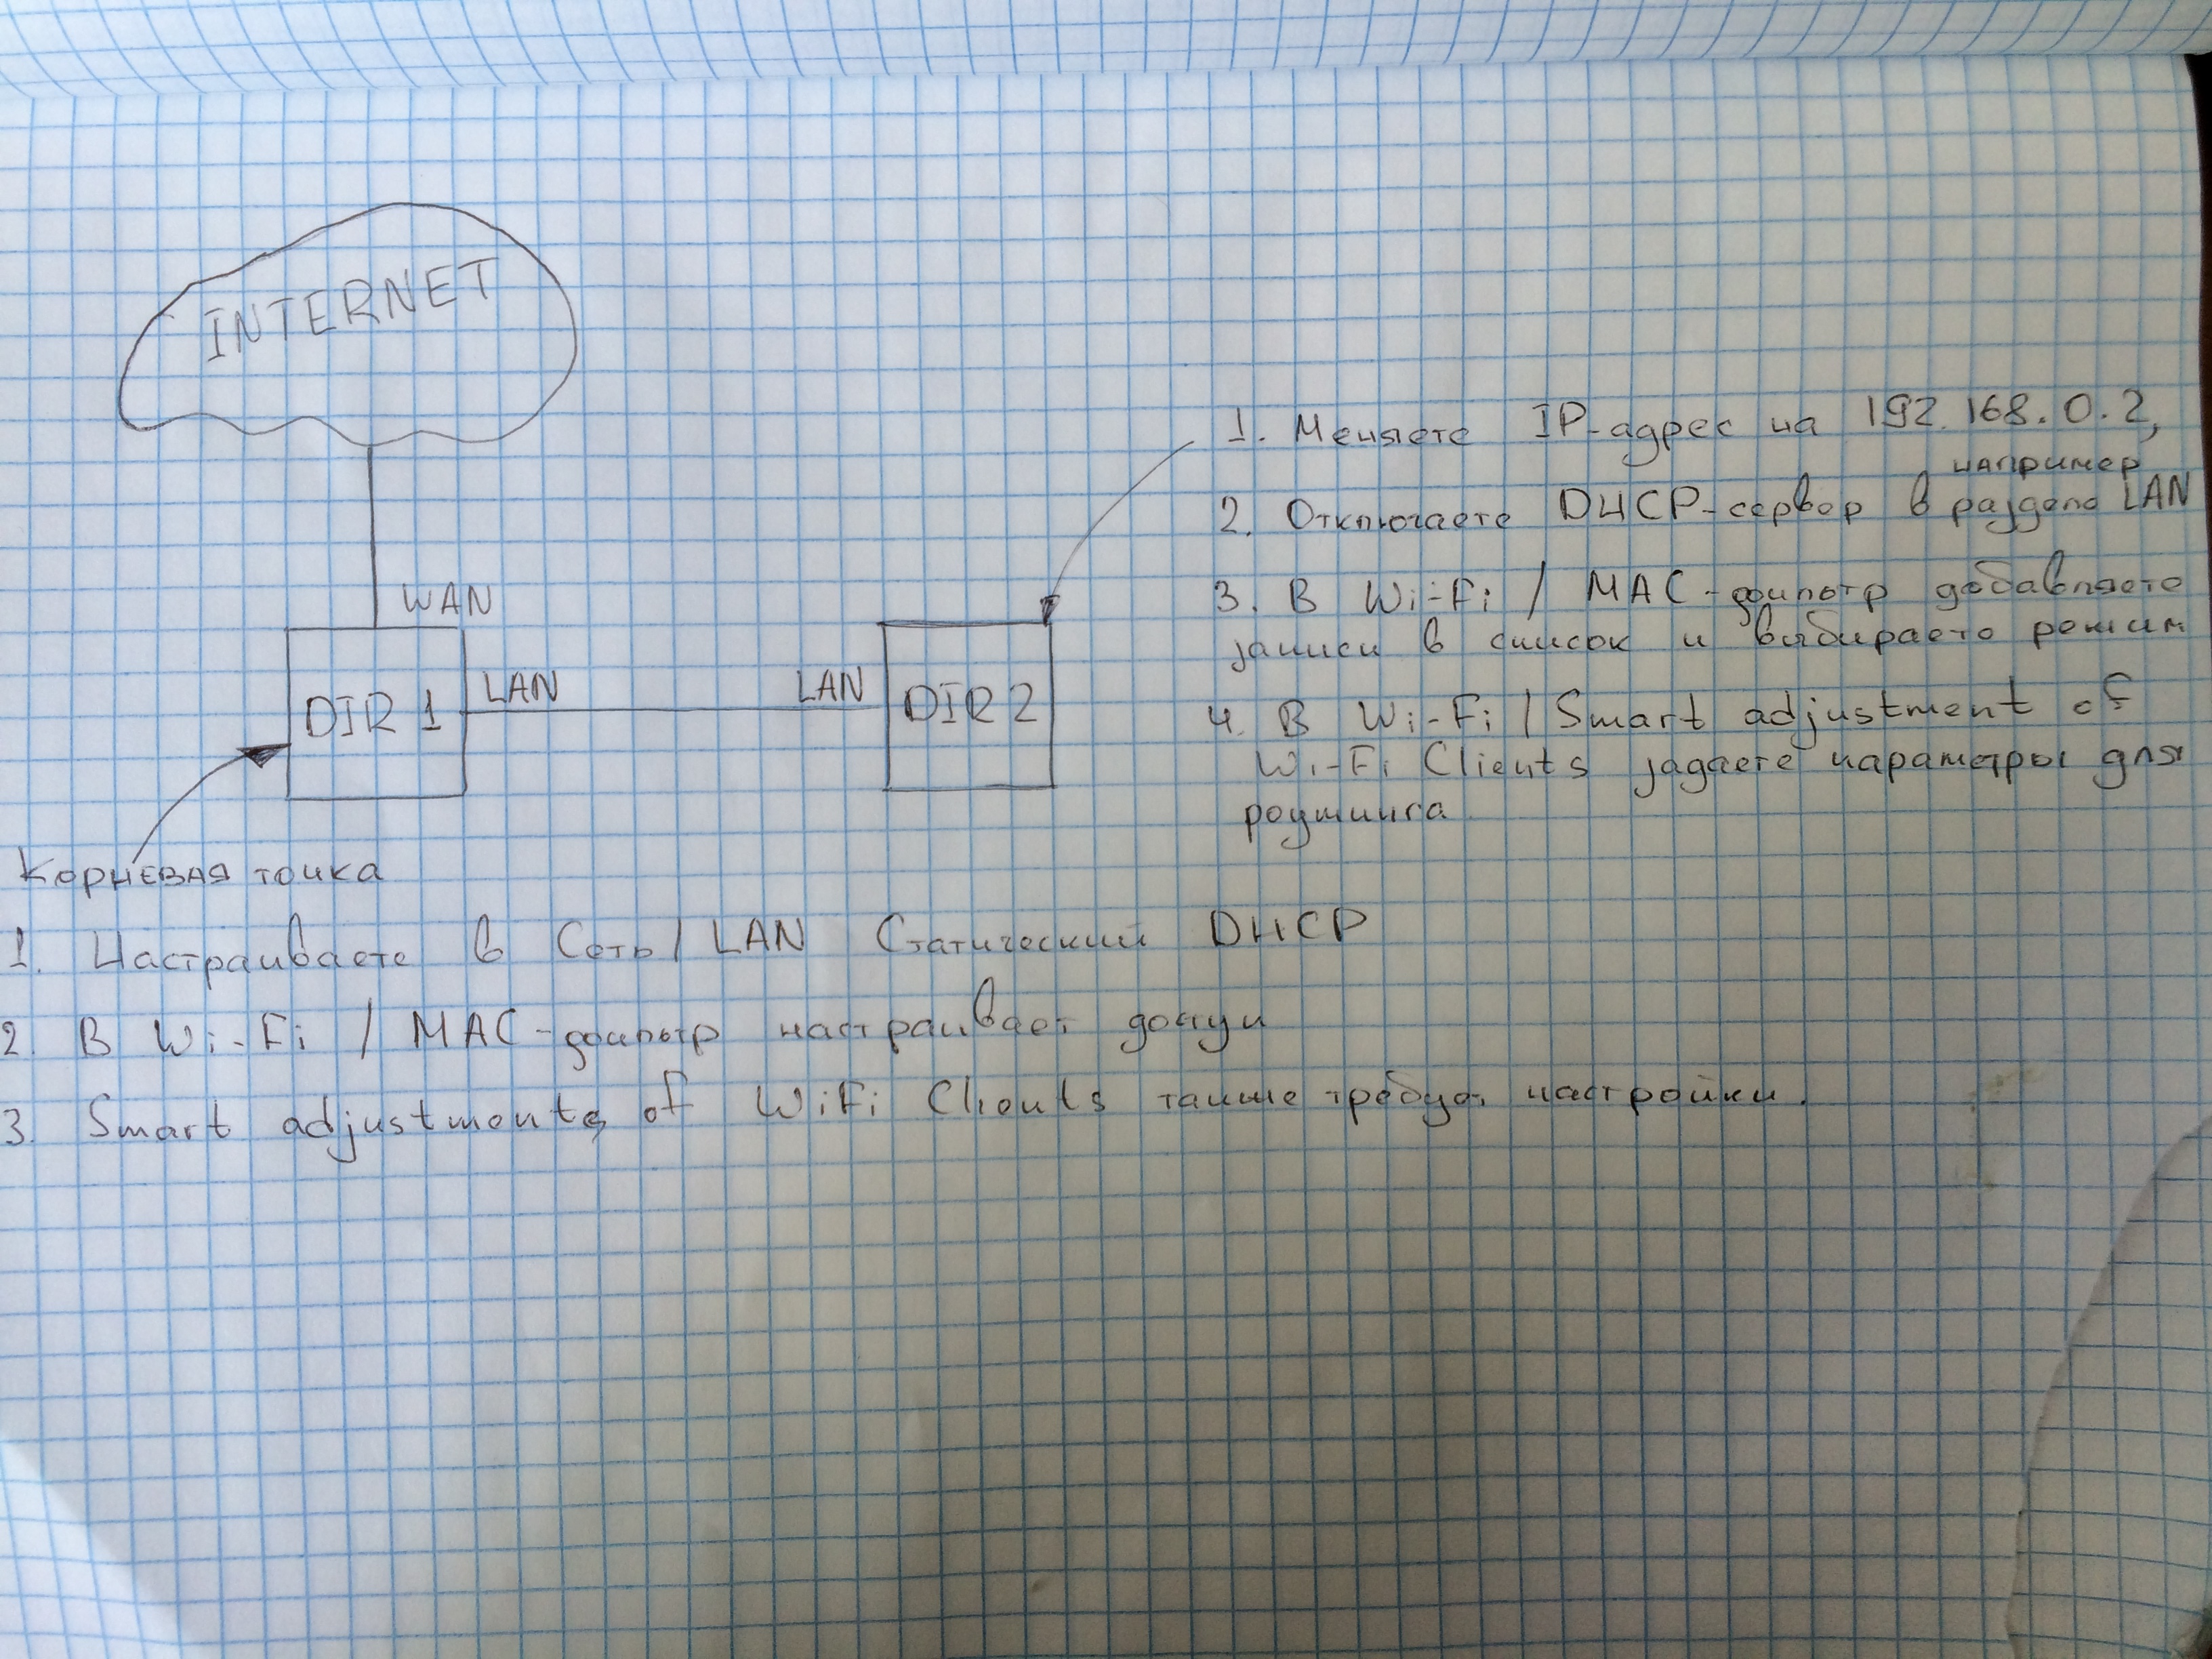 INTERNET
WAN
DIR 1
LAN
LAN
DIR 2
1. Меняете IP-адрес на 192.168.0.2,
например
2. Отключаете DHCP-сервер в разделе LAN
3. В Wi-Fi / MAC-фильтр добавляете
записи в список и выбираете режим
4. В Wi-Fi / Smart adjustment of
Wi-Fi Clients задаете параметры для
роуминга
Корневая точка
1. Настраиваете в Сеть / LAN Статический DHCP
2. В Wi-Fi / MAC-фильтр настраивает
3. Smart adjustments of WiFi Clients также требует настройки.